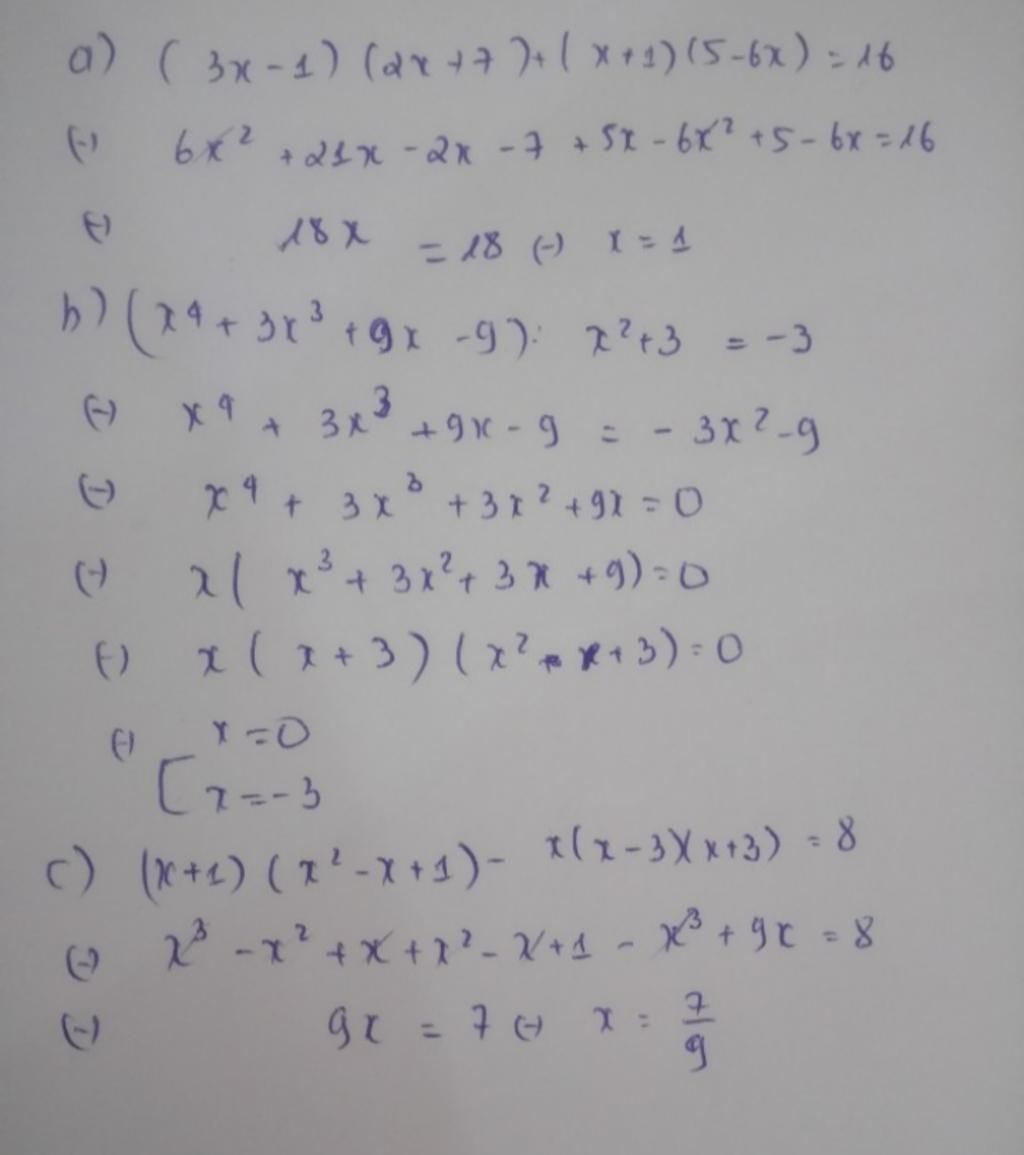 a) (3x-1)(2x+7)+(x+1)(5-6x)=16
(-) 6x² +21x -2x -7 +5x -6x² +5 -6x =16
(-) 18x = 18 (-) x = 1
b) (x⁴ + 3x³ +9x -9): x²+3 = -3
(-) x⁴ + 3x³ +9x - 9 = -3x² -9
(-) x⁴ + 3x³ +3x² +9x = 0
(-) x( x³ + 3x² + 3x +9)=0
(-) x( x+3)(x² +3)=0
(-) [ x=0
x=-3
c) (x+1)(x² -x +1)- x(x-3)(x+3) = 8
(-) x³ -x² +x +x² -x +1 - x³ +9x = 8
(-) 9x = 7 (-) x = 7/9